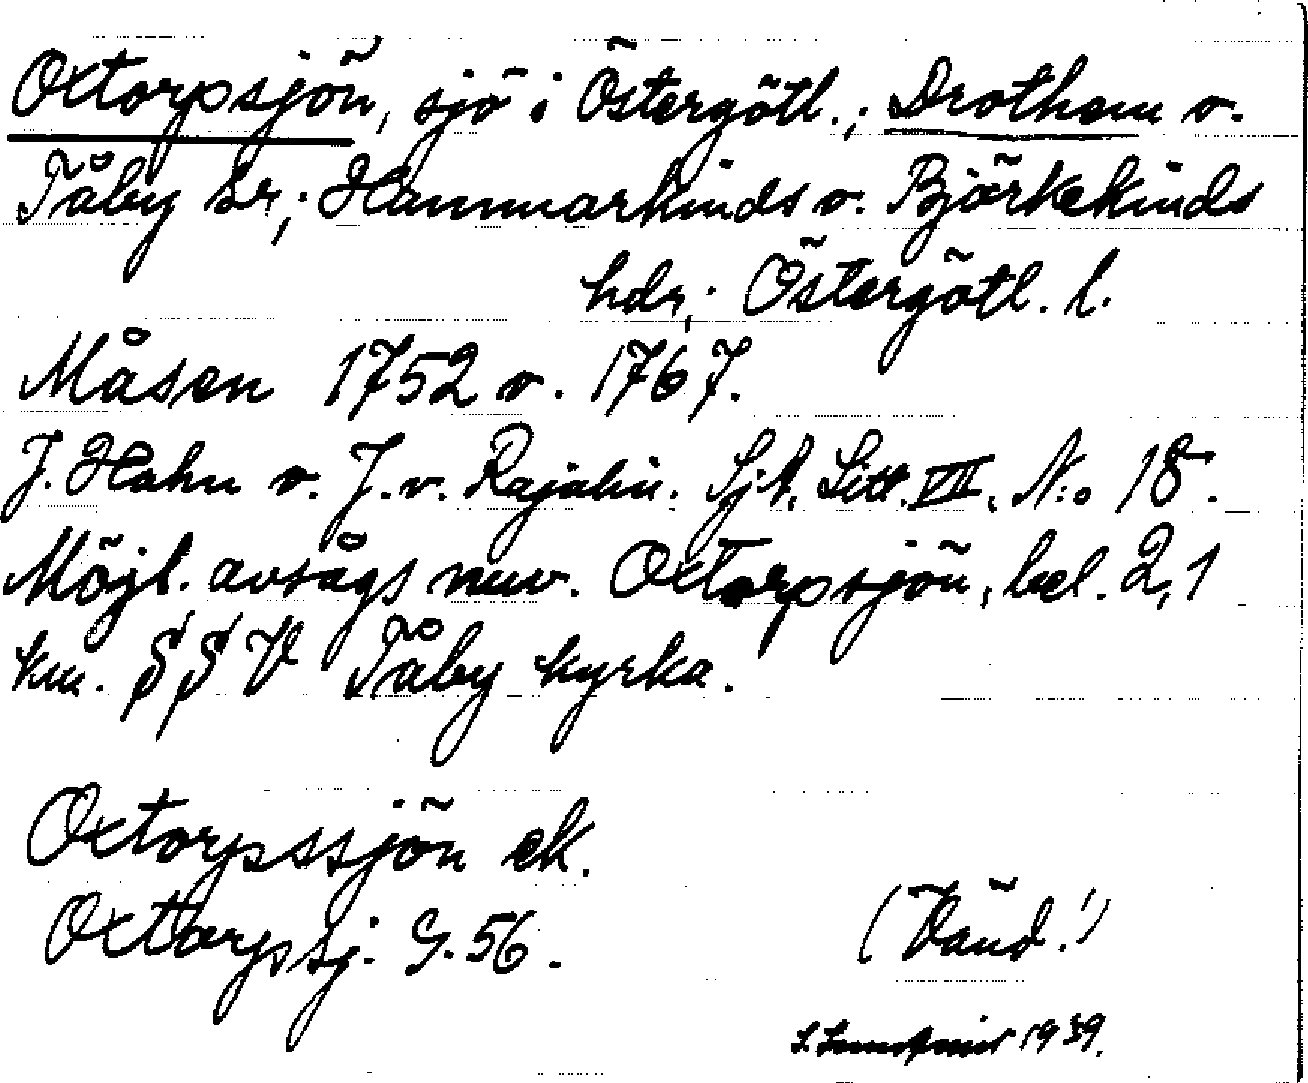 Oxtorpsjön, sjö i Östergötl.; Drothem o.
Tåby sr; Hammarkinds o. Björkekinds
hdr; Östergötl. l.
Måsen 1752 o. 1767.
J. Hahn o. J. v. Rajalin. Sjk. Litt. VII. N:o 18.
Möjl. avsågs nuv. Oxtorpsjön, bel. 2,1
km. S S V Tåby kyrka.
Oxtorpssjön ek.
Oxtorpssj. G. 56.
(Vänd!)
1939.